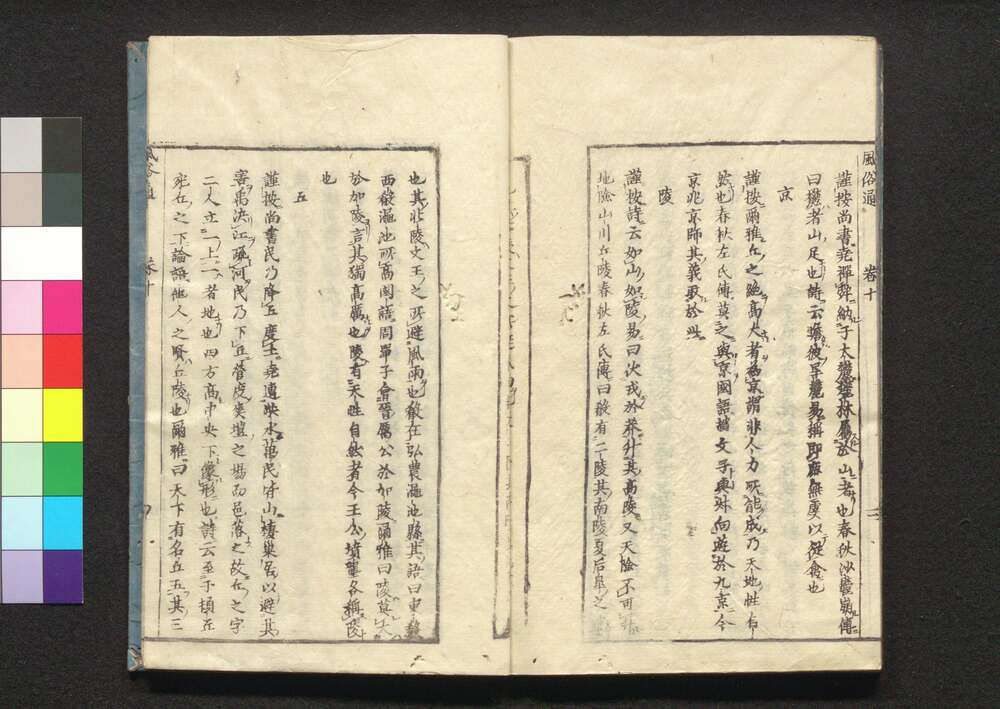 風俗通 卷十 二
謹按尚書堯禪舜納于大麓麓林屬於山者也春秋沙麓崩傳
曰麓者山足也詩云瞻彼旱麓易稱即鹿無虞以從禽也
京
謹按爾雅丘之絶高大者為京謂非人力所能成乃天地性自
然也春秋左氏傳莫之與京國語趙文子與叔向遊於九京今
京兆京師其義取於此
陵
謹按詩云如山如陵易曰伏戎於莽升其高陵又天險不可升
地險山川丘陵春秋左氏傳曰殽有二陵其南陵夏后皐之
也其北陵文王之所避風雨也殽在弘農澠池縣其語曰東殽
西殽澠池所高國語周單子會晉厲公於加陵爾雅曰陵莫大
於加陵言其獨高厲也陵有天性自然者今王公墳壟各稱陵
也
丘
謹按尚書民乃降丘度土堯遭洪水萬民皆山棲巢居以避其
害禹決江疏河民乃下丘營度爽塏之場而邑落之故丘之字
二人立一上一者地也四方高中央下像形也詩云至于頓丘
宛丘之下論語他人之賢丘陵也爾雅曰天下有名丘五其三